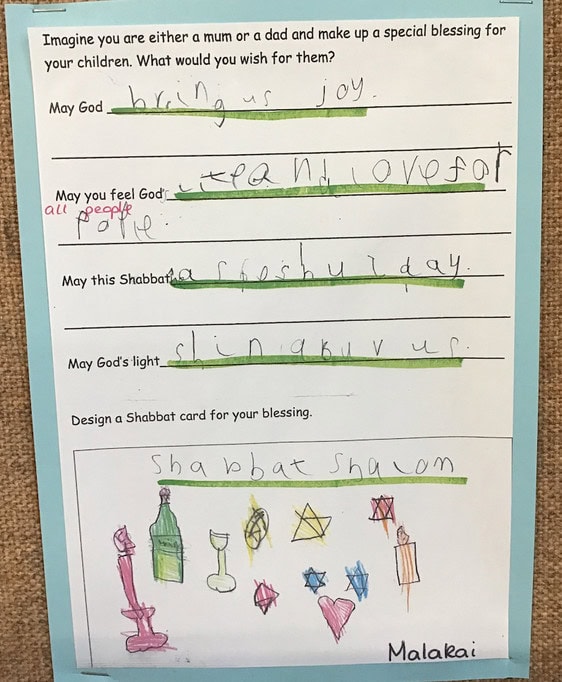 Imagine you are either a mum or a dad and make up a special blessing for
your children. What would you wish for them?
May God bring us joy.
May you feel God's and love for
all people
May this Shabbat a speshul day.
May God's light shin abuv us.
Design a Shabbat card for your blessing.
Shabbat Shalom
Malakai